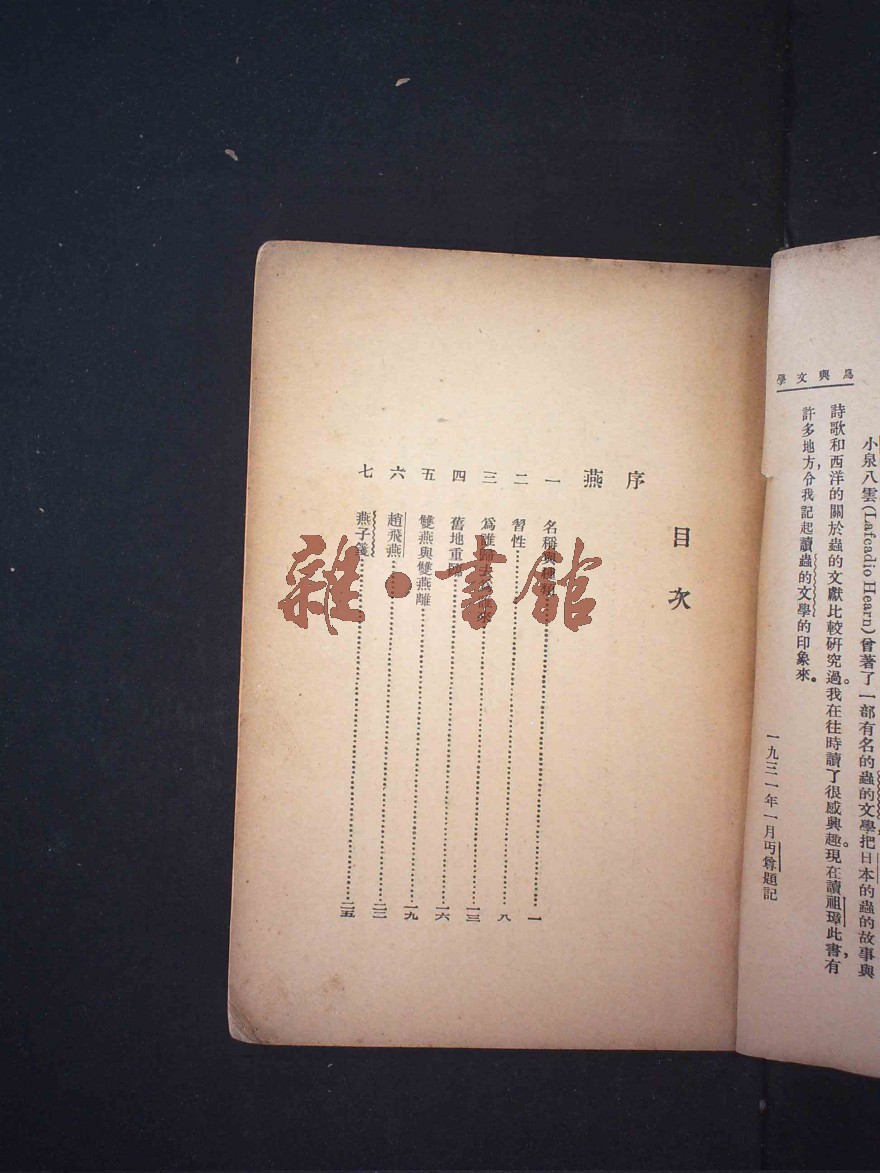 鳥與文學
小泉八雲(Lafcadio Hearn)曾著了一部有名的蟲的文學,把日本的蟲的故事與
詩歌和西洋的關於蟲的文獻比較研究過。我在往時讀了很感興趣。現在讀祖璋此書,有
許多地方,令我記起讀蟲的文學的印象來。
一九三一年一月丏尊題記
目次
序
燕
一 名稱與種類……一
二 習性……八
三 為誰歸去為誰來……一三
四 舊地重臨……一六
五 雙燕與雙燕離……一九
六 趙飛燕……二二
七 燕子箋……二五
雜·書館